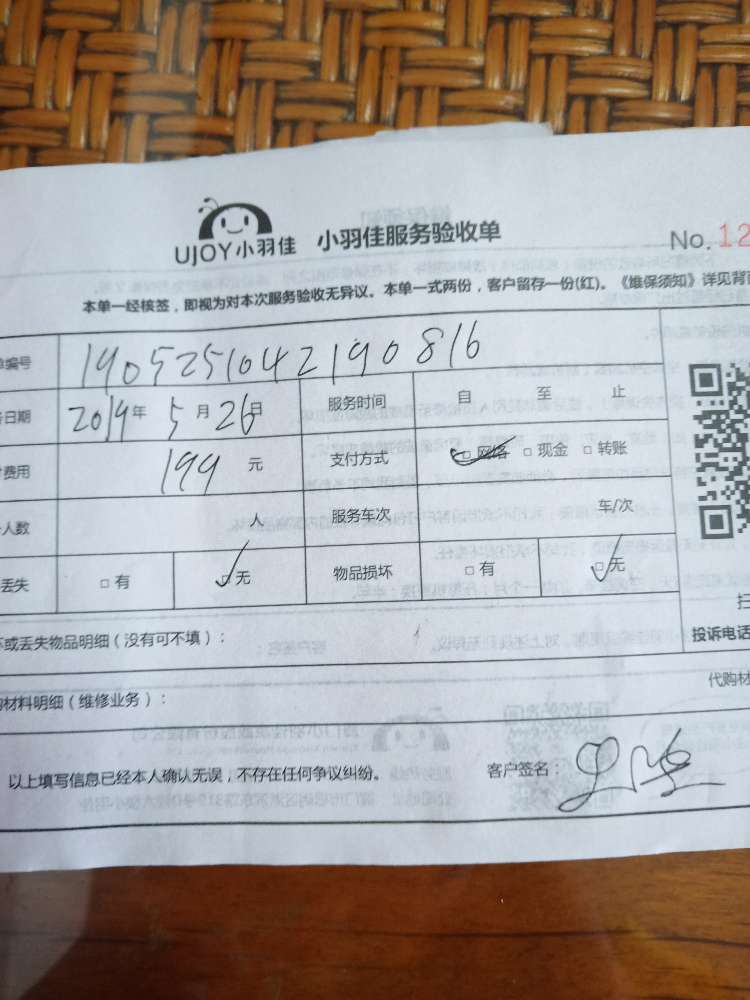 UJOY小羽佳 小羽佳服务验收单 No.12
本单一经核签，即视为对本次服务验收无异议。本单一式两份，客户留存一份(红)。《维保须知》详见背
编号 190525104219 0816
日期 2019年 5月26日 服务时间 自 至 止
费用 199 元 支付方式 □网络 □现金 □转账
人数 人 服务车次 车/次
丢失 □有 □无 物品损坏 □有 □无
或丢失物品明细（没有可不填）：
投诉电话
材料明细（维修业务）： 代购材
以上填写信息已经本人确认无误，不存在任何争议纠纷。 客户签名：